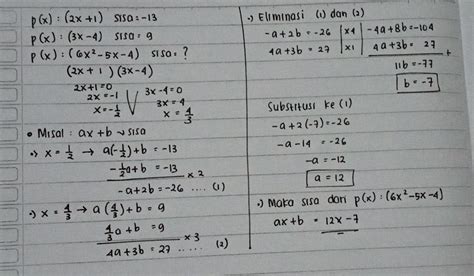 p(x) : (2x+1) sisa = -13
p(x) : (3x-4) sisa = 9
p(x) : (6x²-5x-4) sisa = ?
(2x+1) (3x-4)
2x+1=0
2x = -1
x = -1/2
3x-4=0
3x = 4
x = 4/3
• Misal : ax+b → sisa
•) x = 1/2 → a(-1/2)+b = -13
-1/2a+b = -13 × 2
-a+2b = -26 .... (1)
•) x = 4/3 → a(4/3)+b = 9
4/3a + b = 9 × 3
4a + 3b = 27 ..... (2)
•) Eliminasi (1) dan (2)
-a+2b = -26 |×4| -4a+8b = -104
4a+3b = 27 |×1| 4a+3b = 27 +
11b = -77
b = -7
Substitusi ke (1)
-a+2(-7) = -26
-a-14 = -26
-a = -12
a = 12
•) Maka sisa dari p(x) : (6x²-5x-4)
ax+b = 12x-7